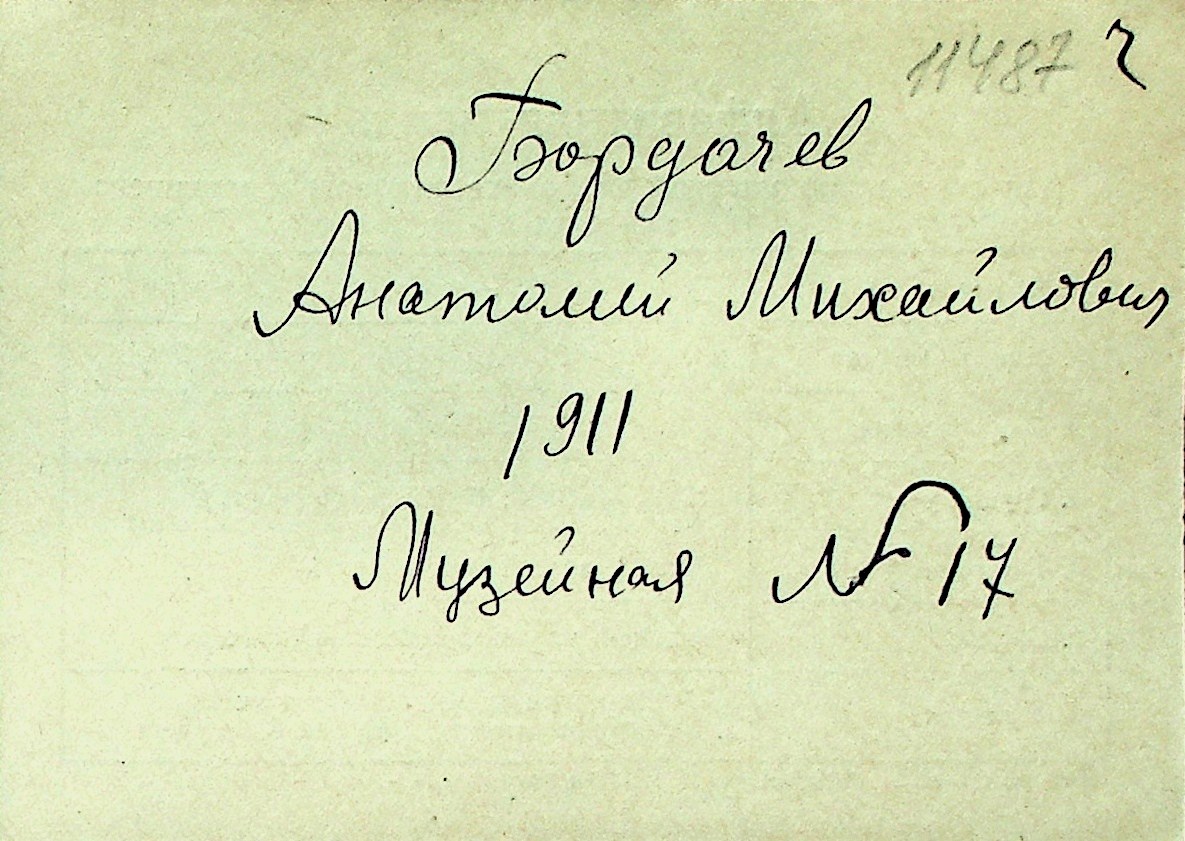 11487 ч
Бордачев
Анатолий Михайлович
1911
Музейная № 17